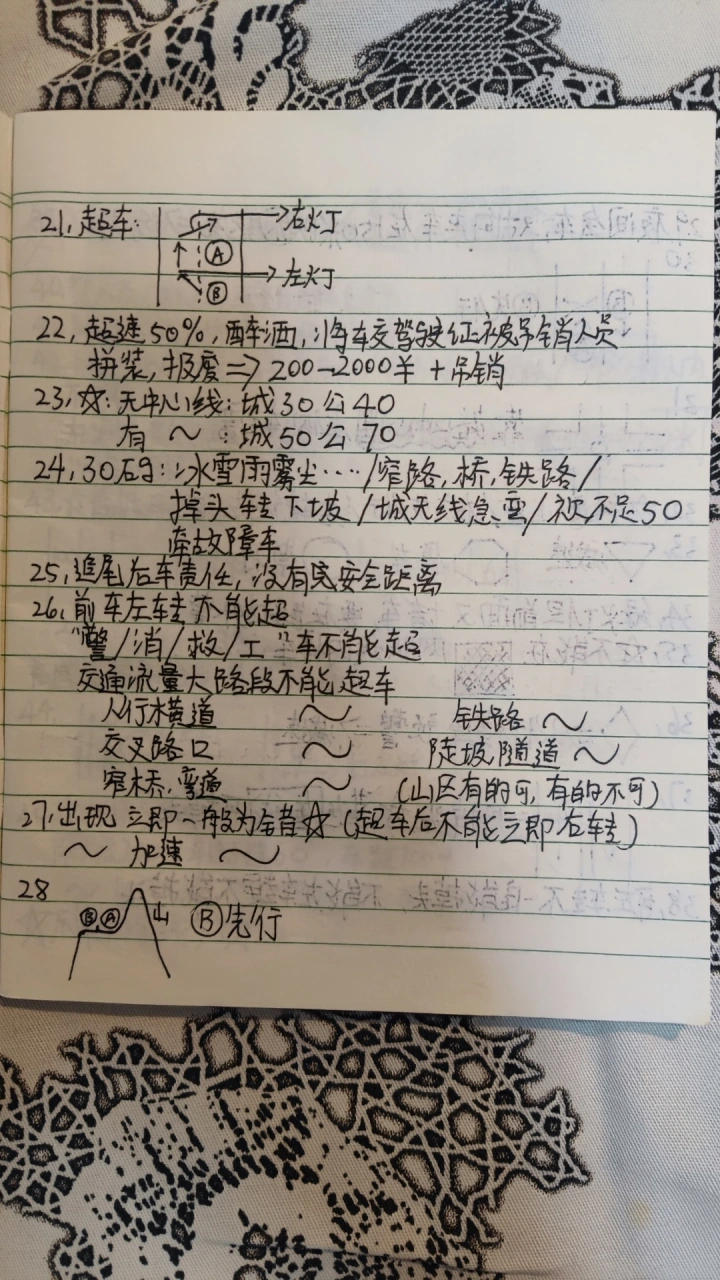 21,超车: →右灯
Ⓐ
→左灯
Ⓑ
22,超速50%,醉酒,将车交驾驶证被吊销人员
拼装,报废⇒200-2000羊+吊销
23,☆:无中心线:城30公40
有 ~ :城50公70
24,30码:冰雪雨雾尘…/窄路,桥,铁路/
掉头转下坡/城无线急弯/ 不足50
牵故障车
25,追尾后车责任,没有 安全距离
26,前车左转不能超
"警/消/救/工"车不能超
交通流量大路段不能超车
人行横道 ~ 铁路 ~
交叉路口 ~ 陡坡,隧道 ~
窄桥,弯道 ~ (山区有的可,有的不可)
27,出现 立即一般为错☆(超车后不能立即右转)
~ 加速 ~
28
ⒷⒶ 山 Ⓑ先行